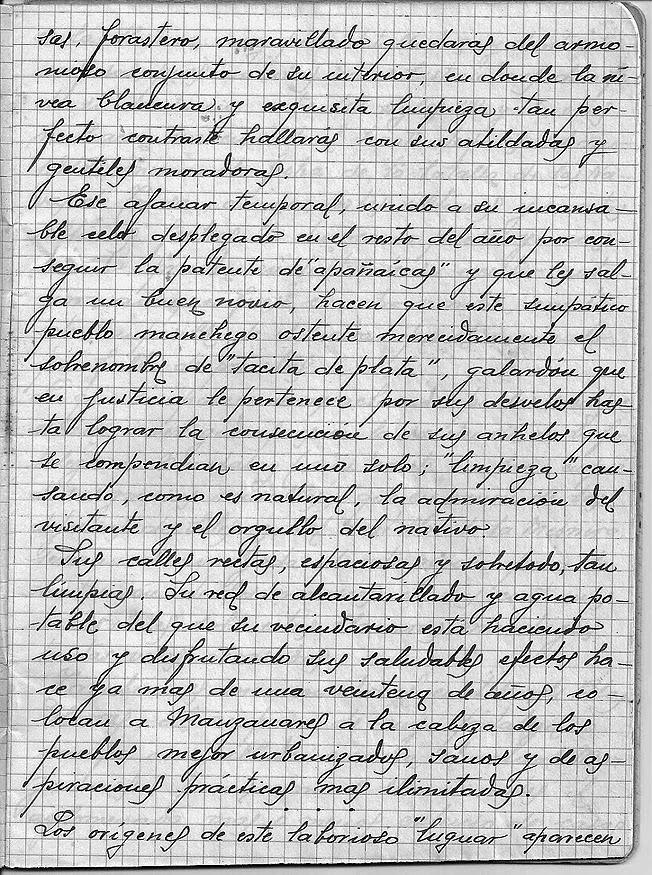 sas, forastero, maravillado quedaras del armo-
nioso conjunto de su interior, en donde la ní-
vea blancura y exquisita limpieza tan per-
fecto contraste hallarás con sus atildadas y
gentiles moradoras.
Ese afanar temporal, unido a su incansa-
ble celo desplegado en el resto del año por con-
seguir la patente de "apañaícas" y que les sal-
ga un buen novio, hacen que este simpático
pueblo manchego ostente merecidamente el
sobrenombre de "tacita de plata", galardón que
en justicia le pertenece por sus desvelos has-
ta lograr la consecución de sus anhelos que
se compendian en uno solo; "limpieza" cau-
sando, como es natural, la admiración del
visitante y el orgullo del nativo.
Sus calles rectas, espaciosas y sobretodo, tan
limpias. Su red de alcantarillado y agua po-
table del que su vecindario esta haciendo
uso y disfrutando sus saludables efectos ha-
ce ya mas de una veintena de años, co-
locan a Manzanares a la cabeza de los
pueblos mejor urbanizados, sanos y de as-
piraciones prácticas mas ilimitadas.
Los orígenes de este laborioso "luguar" aparecen